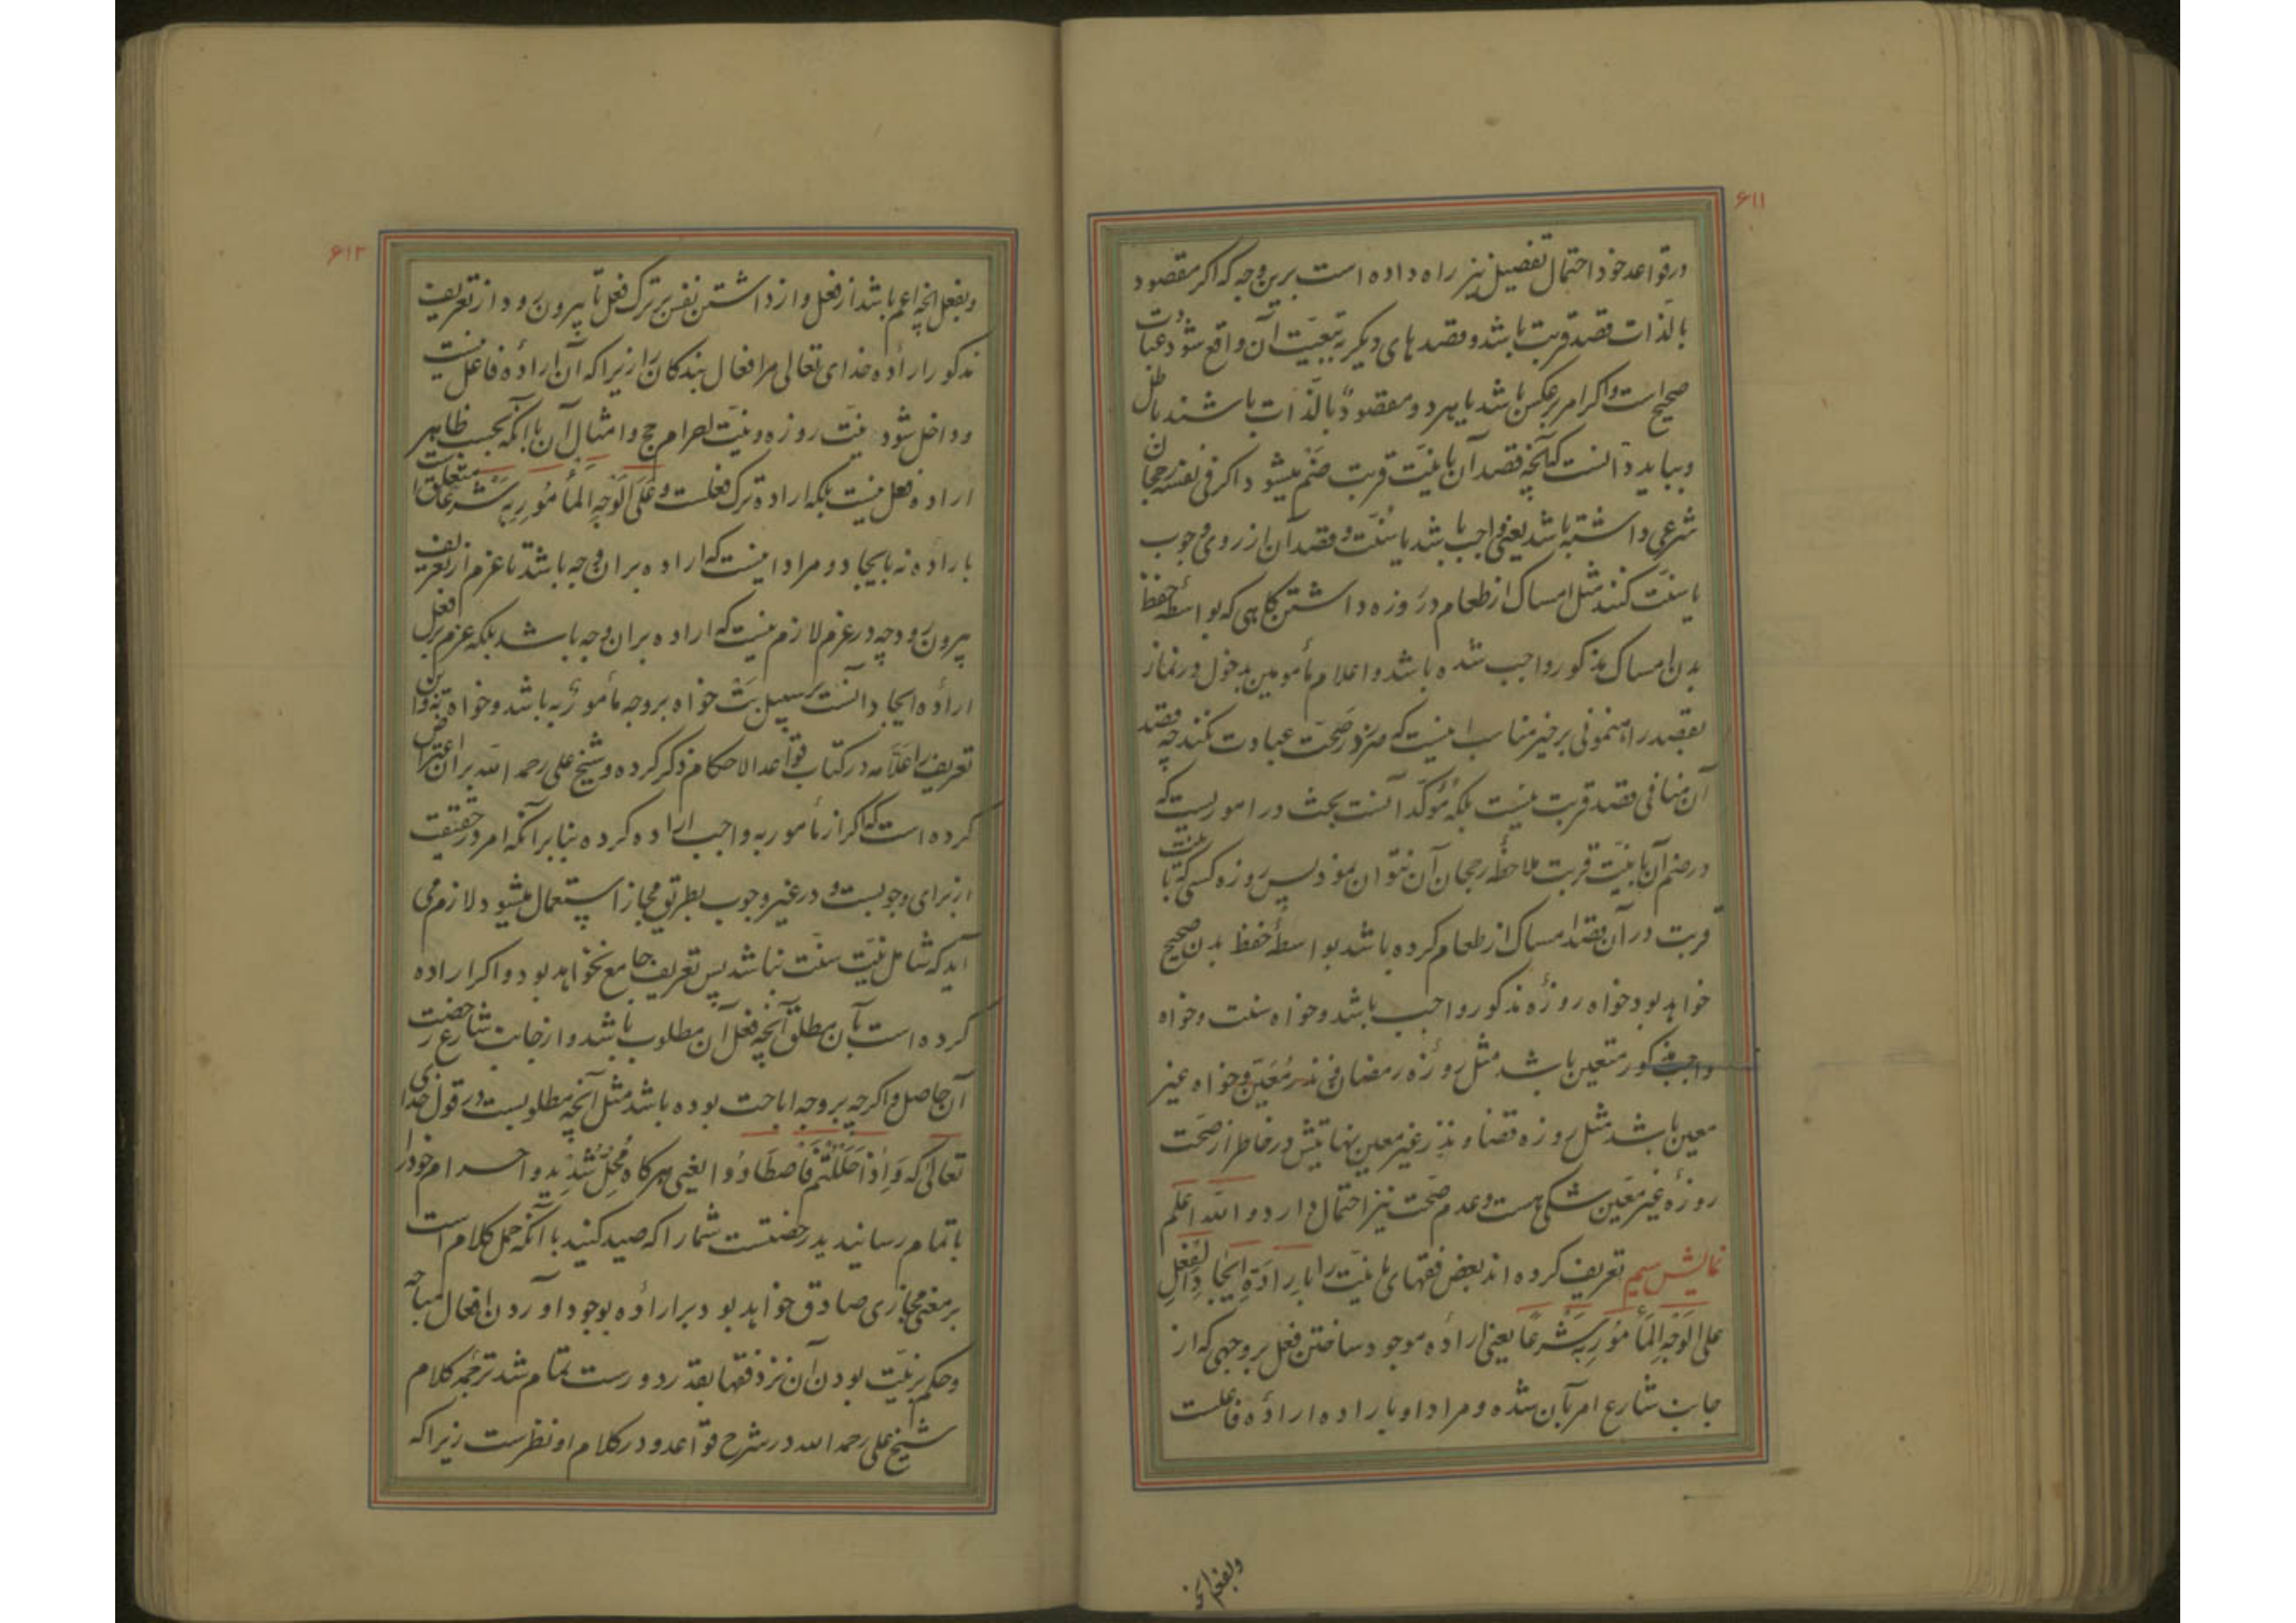 ۶۱۱
در قواعد خود احتمال تفصیل نیز راه داده است برین وجه که اکر مقصود
بالذات قصد قربت باشد و قصدهای دیکر به تبعیّت آن واقع شود عبادت
صحیح است و اکر امر برعکس باشد یا هر دو مقصود بالذات باشند باطل
و بباید دانست که آنچه قصد آن با نیّت قربت ضم میشود اکر فی نفسه رجحان
شرعی داشته باشد یعنی واجب باشد یا سنّت و قصد آن از روی وجوب
یا سنّت کنند مثل امساک از طعام در روزه داشتن کاهی که بواسطهٔ حفظ
بدن امساک مذکور واجب شده باشد و اعلام مأمومین بدخول در نماز
بقصد راه نمونی بر خیر مناسب اینست که ضرر در صحّت عبادت نکند چه قصد
آن منافی قصد قربت نیست بلکه مؤکّد آنست بحث در امور یست که
در ضم آن با نیّت قربت ملاحظهٔ رجحان آن نتوان نمود پس روزه کسی که با نیّت
قربت در آن قصد امساک از طعام کرده باشد بواسطهٔ حفظ بدن صحیح
خواهد بود خواه روزهٔ مذکور واجب باشد و خواه سنت و خواه
واجب مذکور متعین باشد مثل روزه رمضان و نذر مُعَیّن و خواه غیر
معین باشد مثل روزه قضا و نذر غیر معین نهایتش در خاطر از صحّت
روزهٔ غیر معین شکی هست و عدم صحّت نیز احتمال دارد و الله اعلم
نمایش سیم تعریف کرده اند بعض فقهای ما نیّت را باِرادَةِ اِیجادِ الفِعلِ
علی الوَجهِ المَأمُورِ بِه شَرعًا یعنی ارادهٔ موجود ساختن فعل بر وجهی که از
جانب شارع امر بآن شده و مراد او باراده ارادهٔ فاعلست
وبفعل آنچه
۶۱۲
وبفعل آنچه اعم باشد از فعل و از داشتن نفس بر ترک فعل تا بیرون رود از تعریف
مذکور ارادهٔ خدای تعالی مر افعال بندکان را زیرا که آن ارادهٔ فاعل نیست
و داخل شود نیّت روزه و نیّت احرام حج و امثال آن با آنکه بحسب ظاهر
اراده فعل نیست بلکه ارادهٔ ترک فعلست و عَلَی الوَجهِ المأمُورِ بِه شَرعًا متعلق است
باراده نه بایجاد و مراد اینست که اراده بران وجه باشد تا عزم از تعریف
بیرون رود چه در عزم لازم نیست که اراده بران وجه باشد بلکه عزم بر فعل
ارادهٔ ایجاد آنست بر سبیل بَتّ خواه بر وجه مأمورٌ به باشد و خواه نه و این
تعریف را علّامه در کتاب قواعد الاحکام ذکر کرده و شیخ علی رحمه الله بران اعتراض
کرده است که اکر از مأمور به واجب اراده کرده بنابر آنکه امر در حقیقت
از برای وجوبست و در غیر وجوب بطریق مجاز استعمال میشود لازم می
آید که شامل نیّت سنّت نباشد پس تعریف جامع نخواهد بود و اکر اراده
کرده است بآن مطلق آنچه فعل آن مطلوب باشد و از جانب شارع رخصت
آن حاصل و اکرچه بر وجه اباحت بوده باشد مثل آنچه مطلوبست در قول خدای
تعالی که وَ اِذا حَلَلتُم فَاصطَادُوا یعنی هرکاه مُحِلّ شدید و احرام خود را
باتمام رسانیدید رخصتست شما را که صید کنید با آنکه حمل کلام است
بر معنی مجازی صادق خواهد بود بر ارادهٔ بوجود آوردن افعال مباحه
و حکم بر نیّت بودن آن نزد فقها بقدر دورست بتمام شد ترجمهٔ کلام
شیخ علی رحمه الله در شرح قواعد و در کلام او نظرست زیرا که